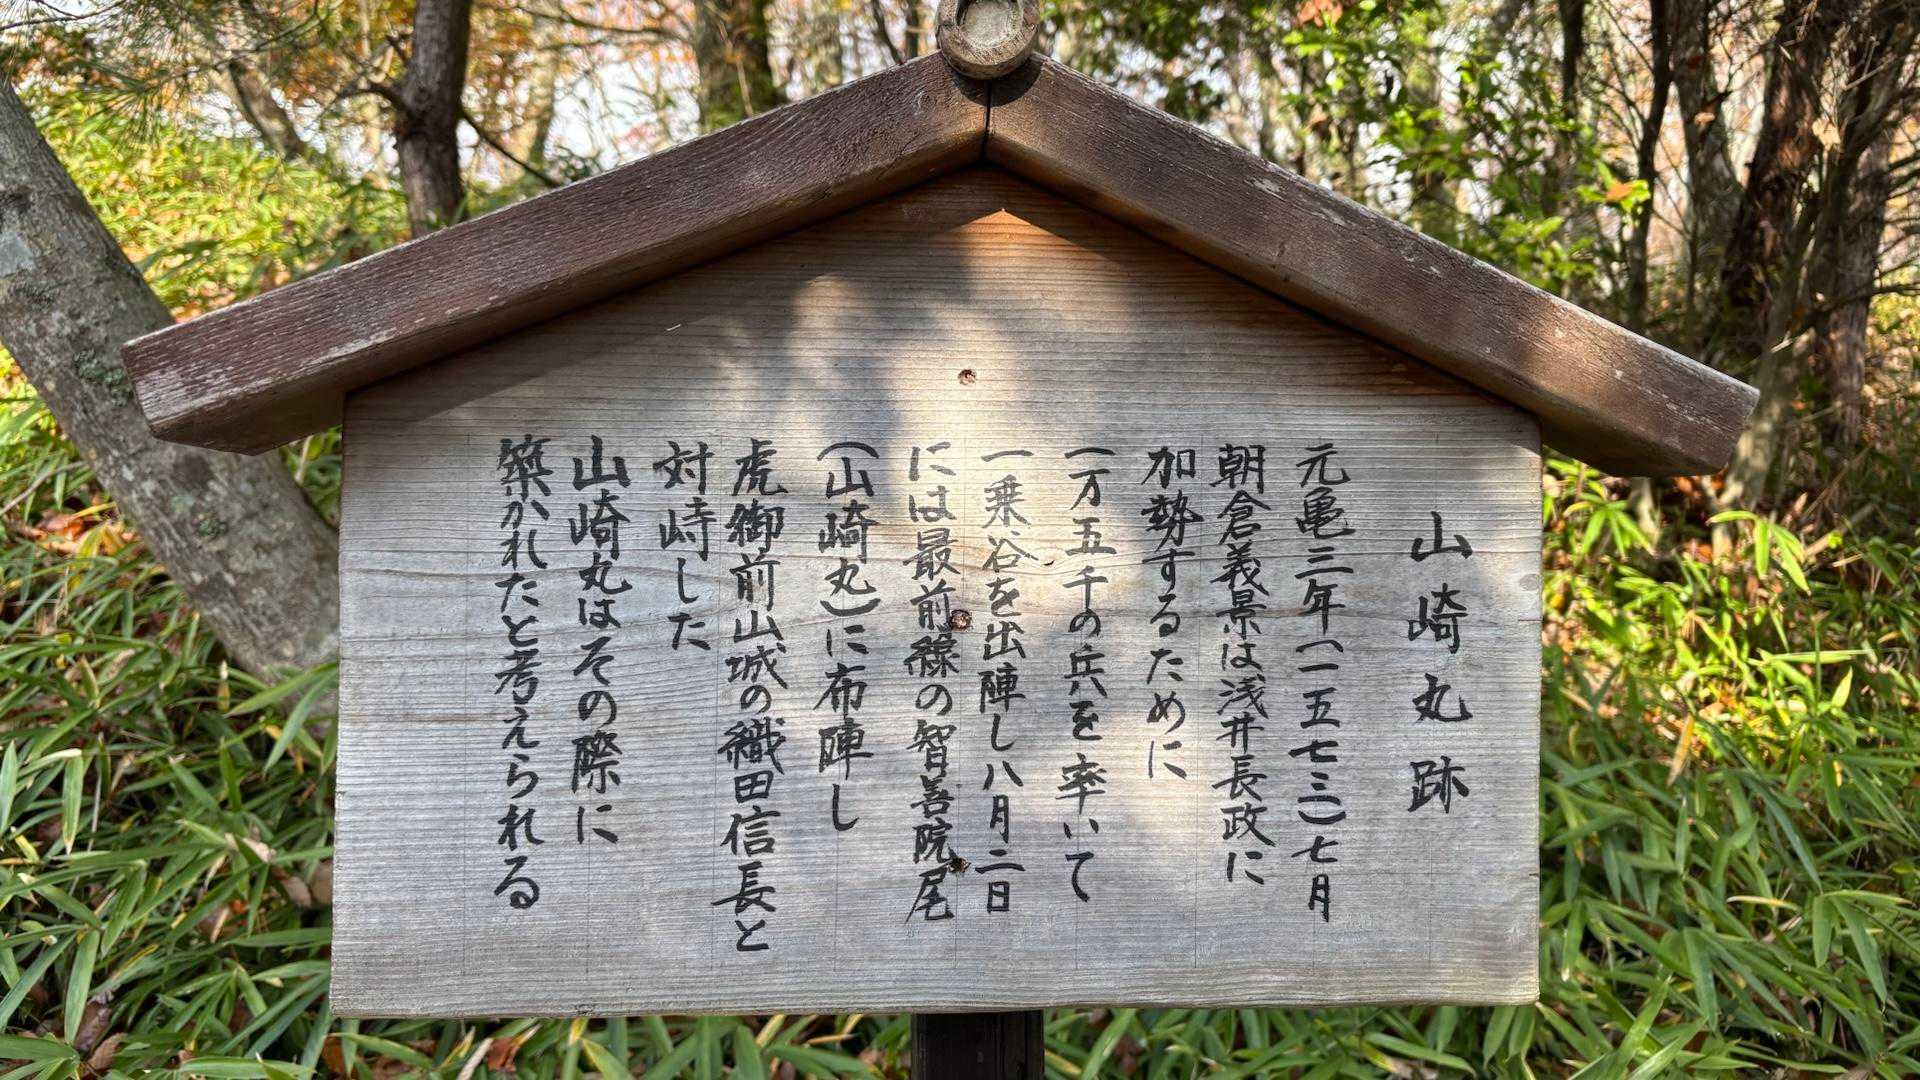 山崎丸跡
元亀三年(一五七三)七月
朝倉義景は浅井長政に
加勢するために
一万五千の兵を率いて
一乗谷を出陣し八月二日
には最前線の智善院尾
(山崎丸)に布陣し
虎御前山城の織田信長と
対峙した
山崎丸はその際に
築かれたと考えられる